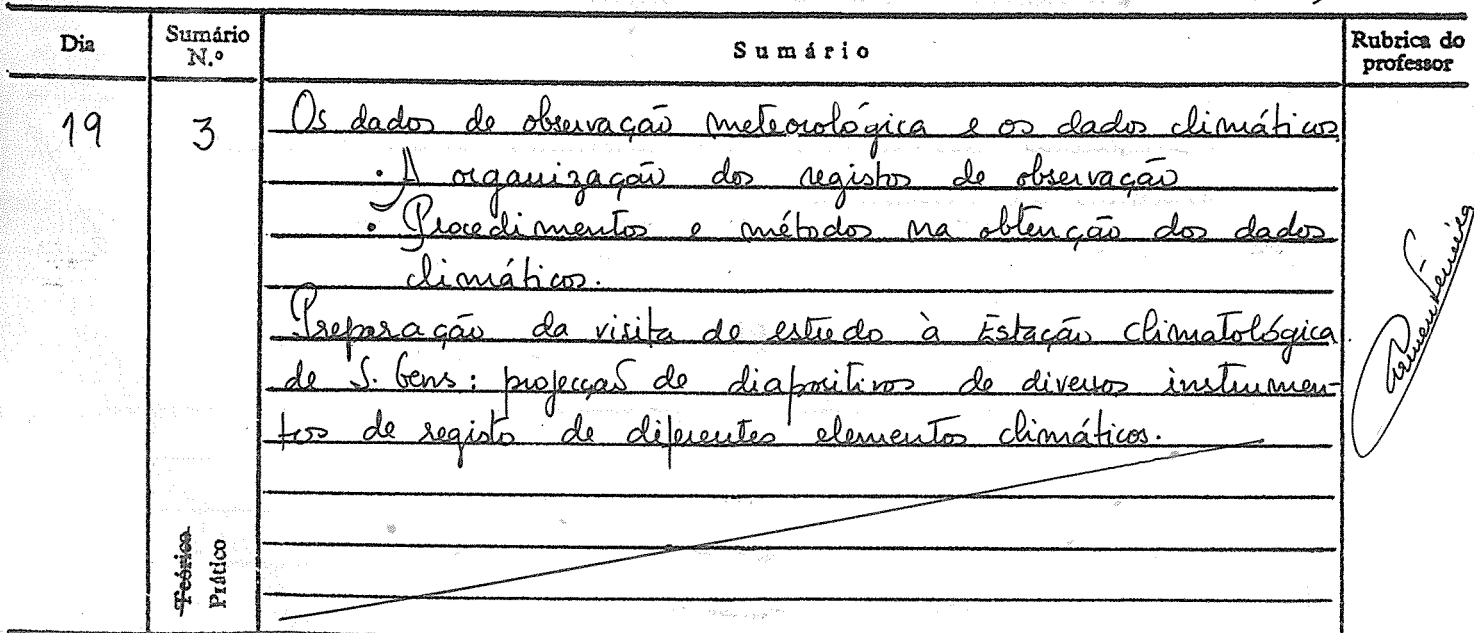 Dia Sumário N.º Sumário Rubrica do professor
19 3 Os dados de observação meteorológica e os dados climáticos
· A organização dos registos de observação
· Procedimentos e métodos na obtenção dos dados
climáticos.
Preparação da visita de estudo à Estação Climatológica
de S. Gens: projecção de diapositivos de diversos instrumen-
tos de registo de diferentes elementos climáticos.
Teórica
Prático